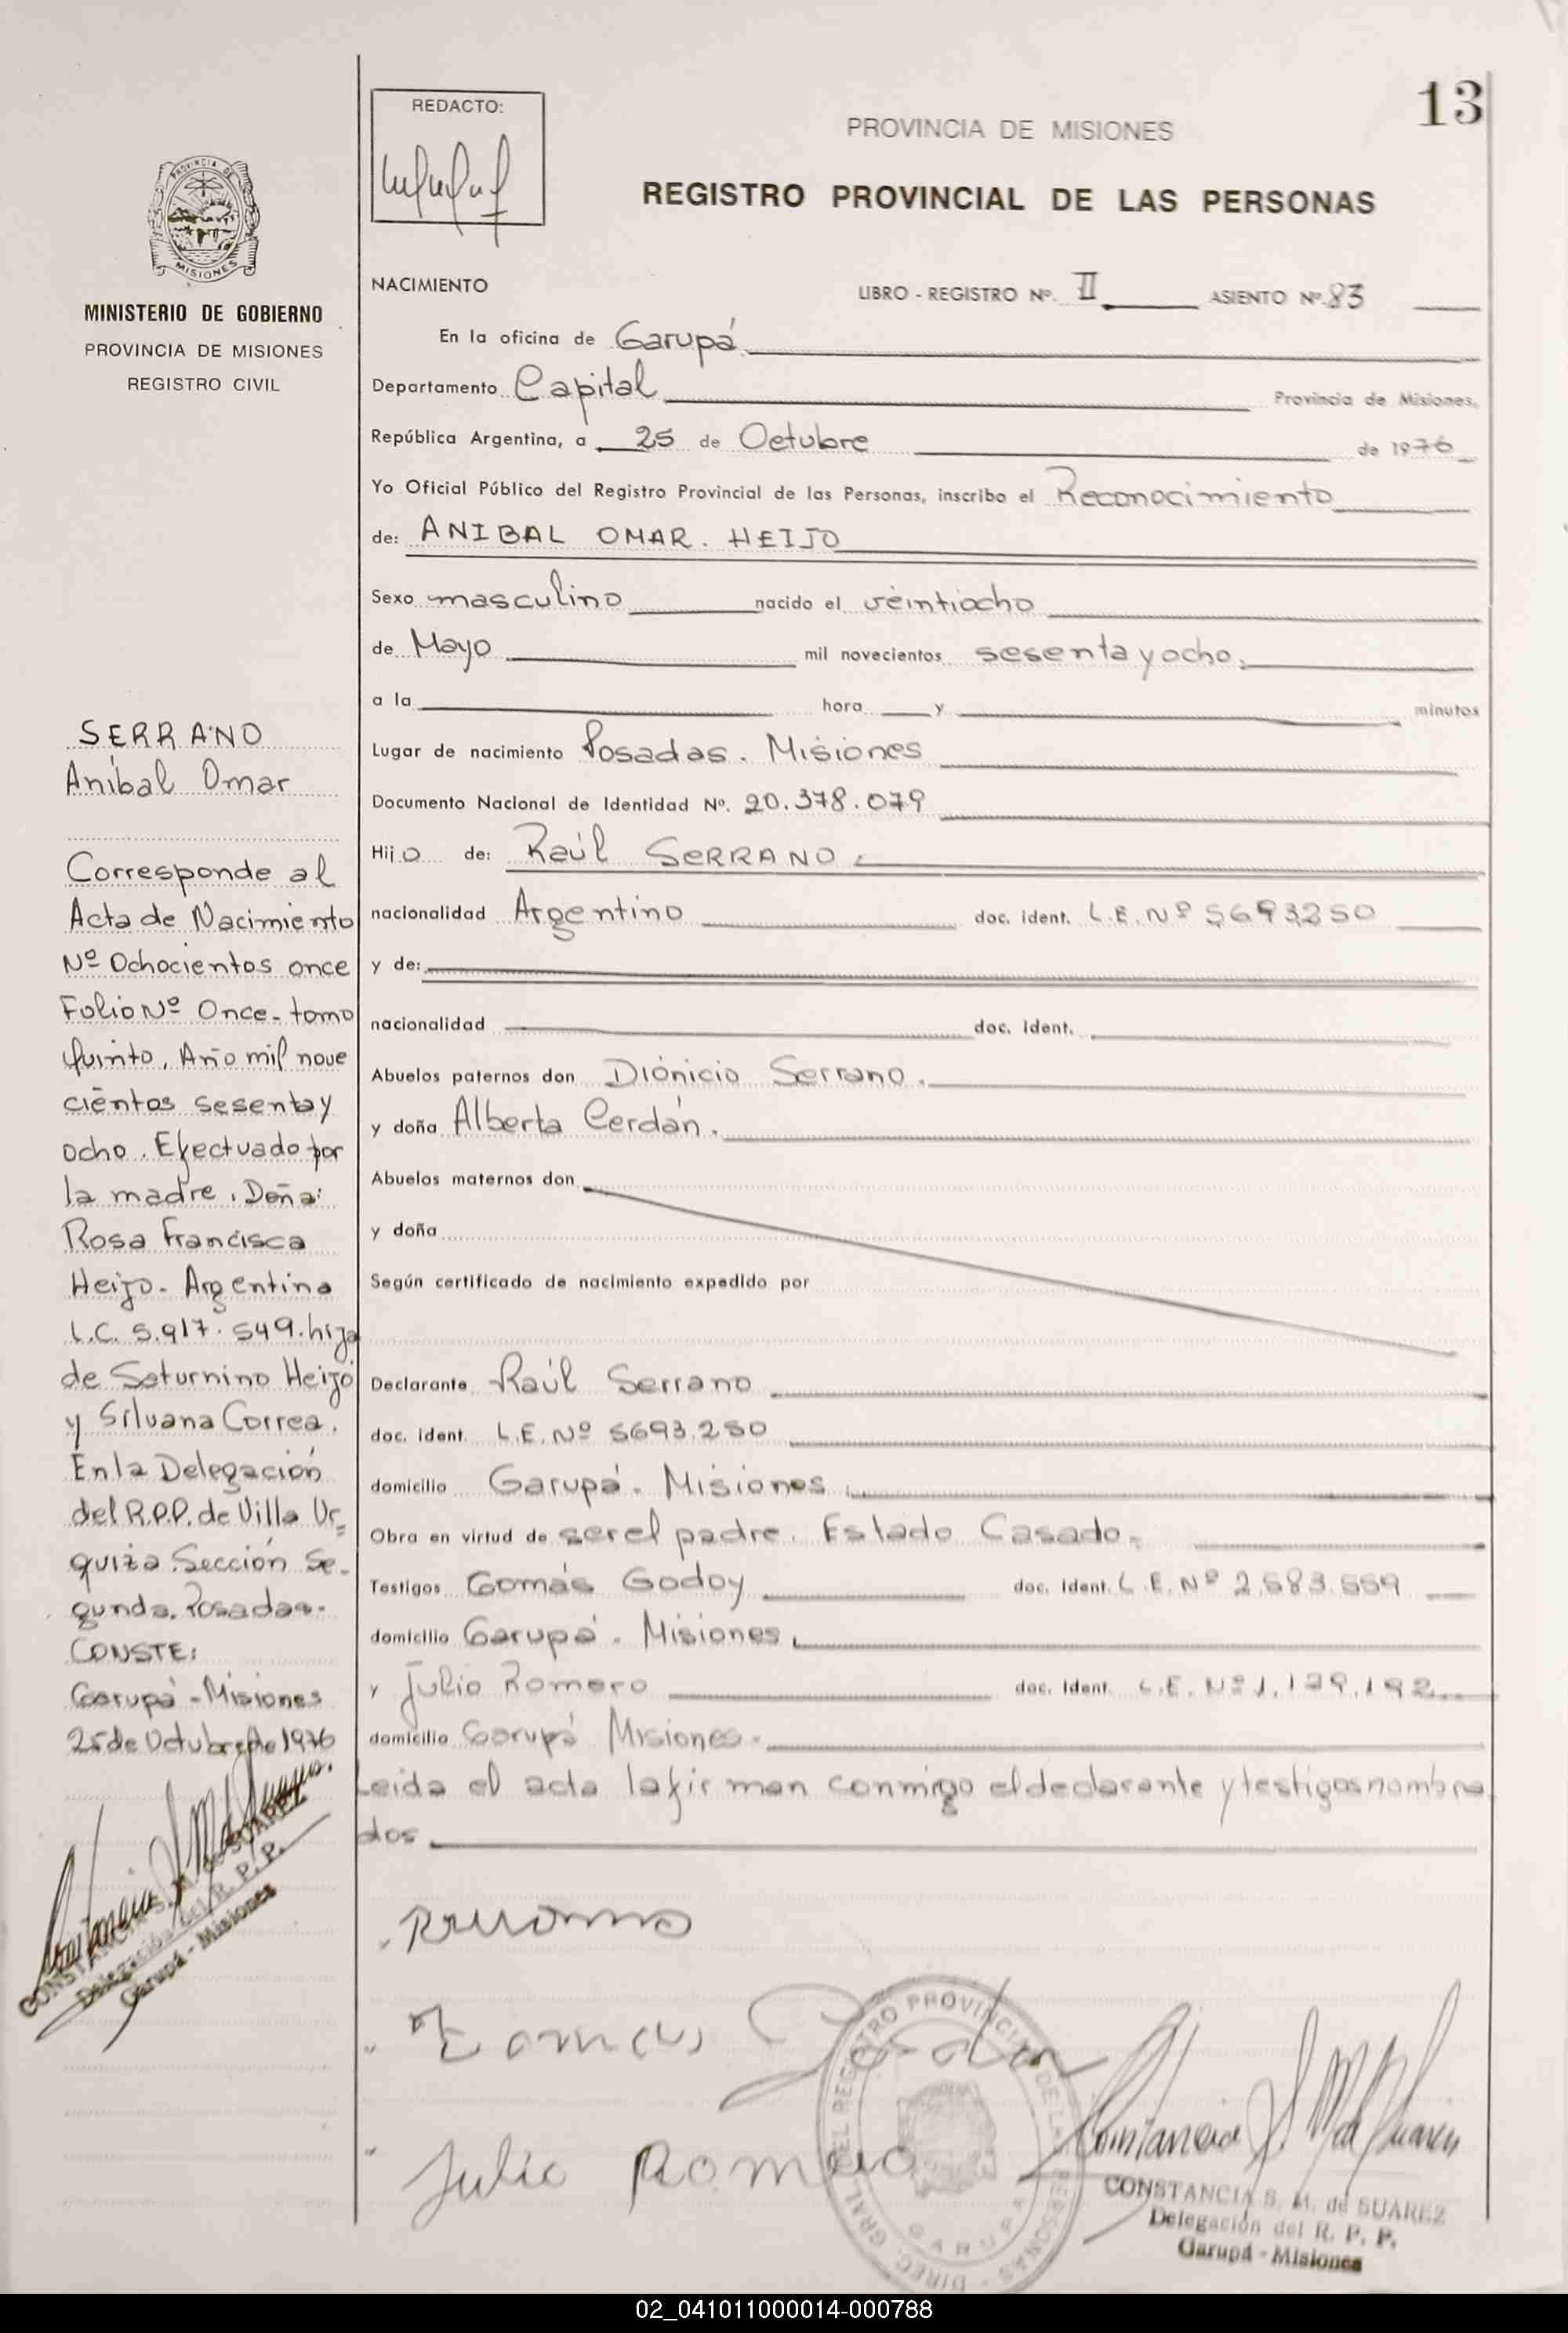 13
REDACTO:
PROVINCIA DE MISIONES
REGISTRO PROVINCIAL DE LAS PERSONAS
PROVINCIA DE
MISIONES
MINISTERIO DE GOBIERNO
PROVINCIA DE MISIONES
REGISTRO CIVIL
SERRANO
Aníbal Omar
Corresponde al
Acta de Nacimiento
Nº Ochocientos once
Folio Nº Once - tomo
Quinto, Año mil nove
cientos sesenta y
ocho. Efectuado por
la madre, Doña:
Rosa Francisca
Heijo - Argentina
L.C. 5.917.549. hija
de Saturnino Heijo
y Silvana Correa.
En la Delegación
del R.P.P. de Villa Ur=
quiza Sección Se-
gunda. Posadas-
CONSTE:
Garupá - Misiones
25 de Octubre de 1976
CONSTANCIA S. M. de SUAREZ
Delegación del R. P. P.
Garupá - Misiones
NACIMIENTO LIBRO - REGISTRO Nº. II ASIENTO Nº. 83
En la oficina de Garupá
Departamento Capital Provincia de Misiones,
República Argentina, a 25 de Octubre de 1976
Yo Oficial Público del Registro Provincial de las Personas, inscribo el Reconocimiento
de: ANIBAL OMAR. HEIJO
Sexo masculino nacido el veintiocho
de Mayo mil novecientos sesenta y ocho,
a la hora y minutos
Lugar de nacimiento Posadas. Misiones
Documento Nacional de Identidad Nº. 20.378.079
Hijo de: Raúl SERRANO.
nacionalidad Argentino doc. ident. L.E. Nº 5693250
y de:
nacionalidad doc. ident.
Abuelos paternos don Diónicio Serrano.
y doña Alberta Cerdán.
Abuelos maternos don
y doña
Según certificado de nacimiento expedido por
Declarante Raúl Serrano
doc. ident. L.E. Nº 5693.250
domicilio Garupá. Misiones
Obra en virtud de ser el padre. Estado Casado.
Testigos Tomás Godoy doc. ident. L.E. Nº 2.583.559
domicilio Garupá. Misiones
y Julio Romero doc. ident. L.E. Nº 1.129.192
domicilio Garupá Misiones.
Leida el acta la firman conmigo el declarante y testigos nombra
dos
Tomas Godoy
Julio Romero
DIREC. GRAL. DEL REGISTRO PROVINCIAL DE LAS PERSONAS
GARUPA
CONSTANCIA S. M. de SUAREZ
Delegación del R. P. P.
Garupá - Misiones
02_041011000014-000788